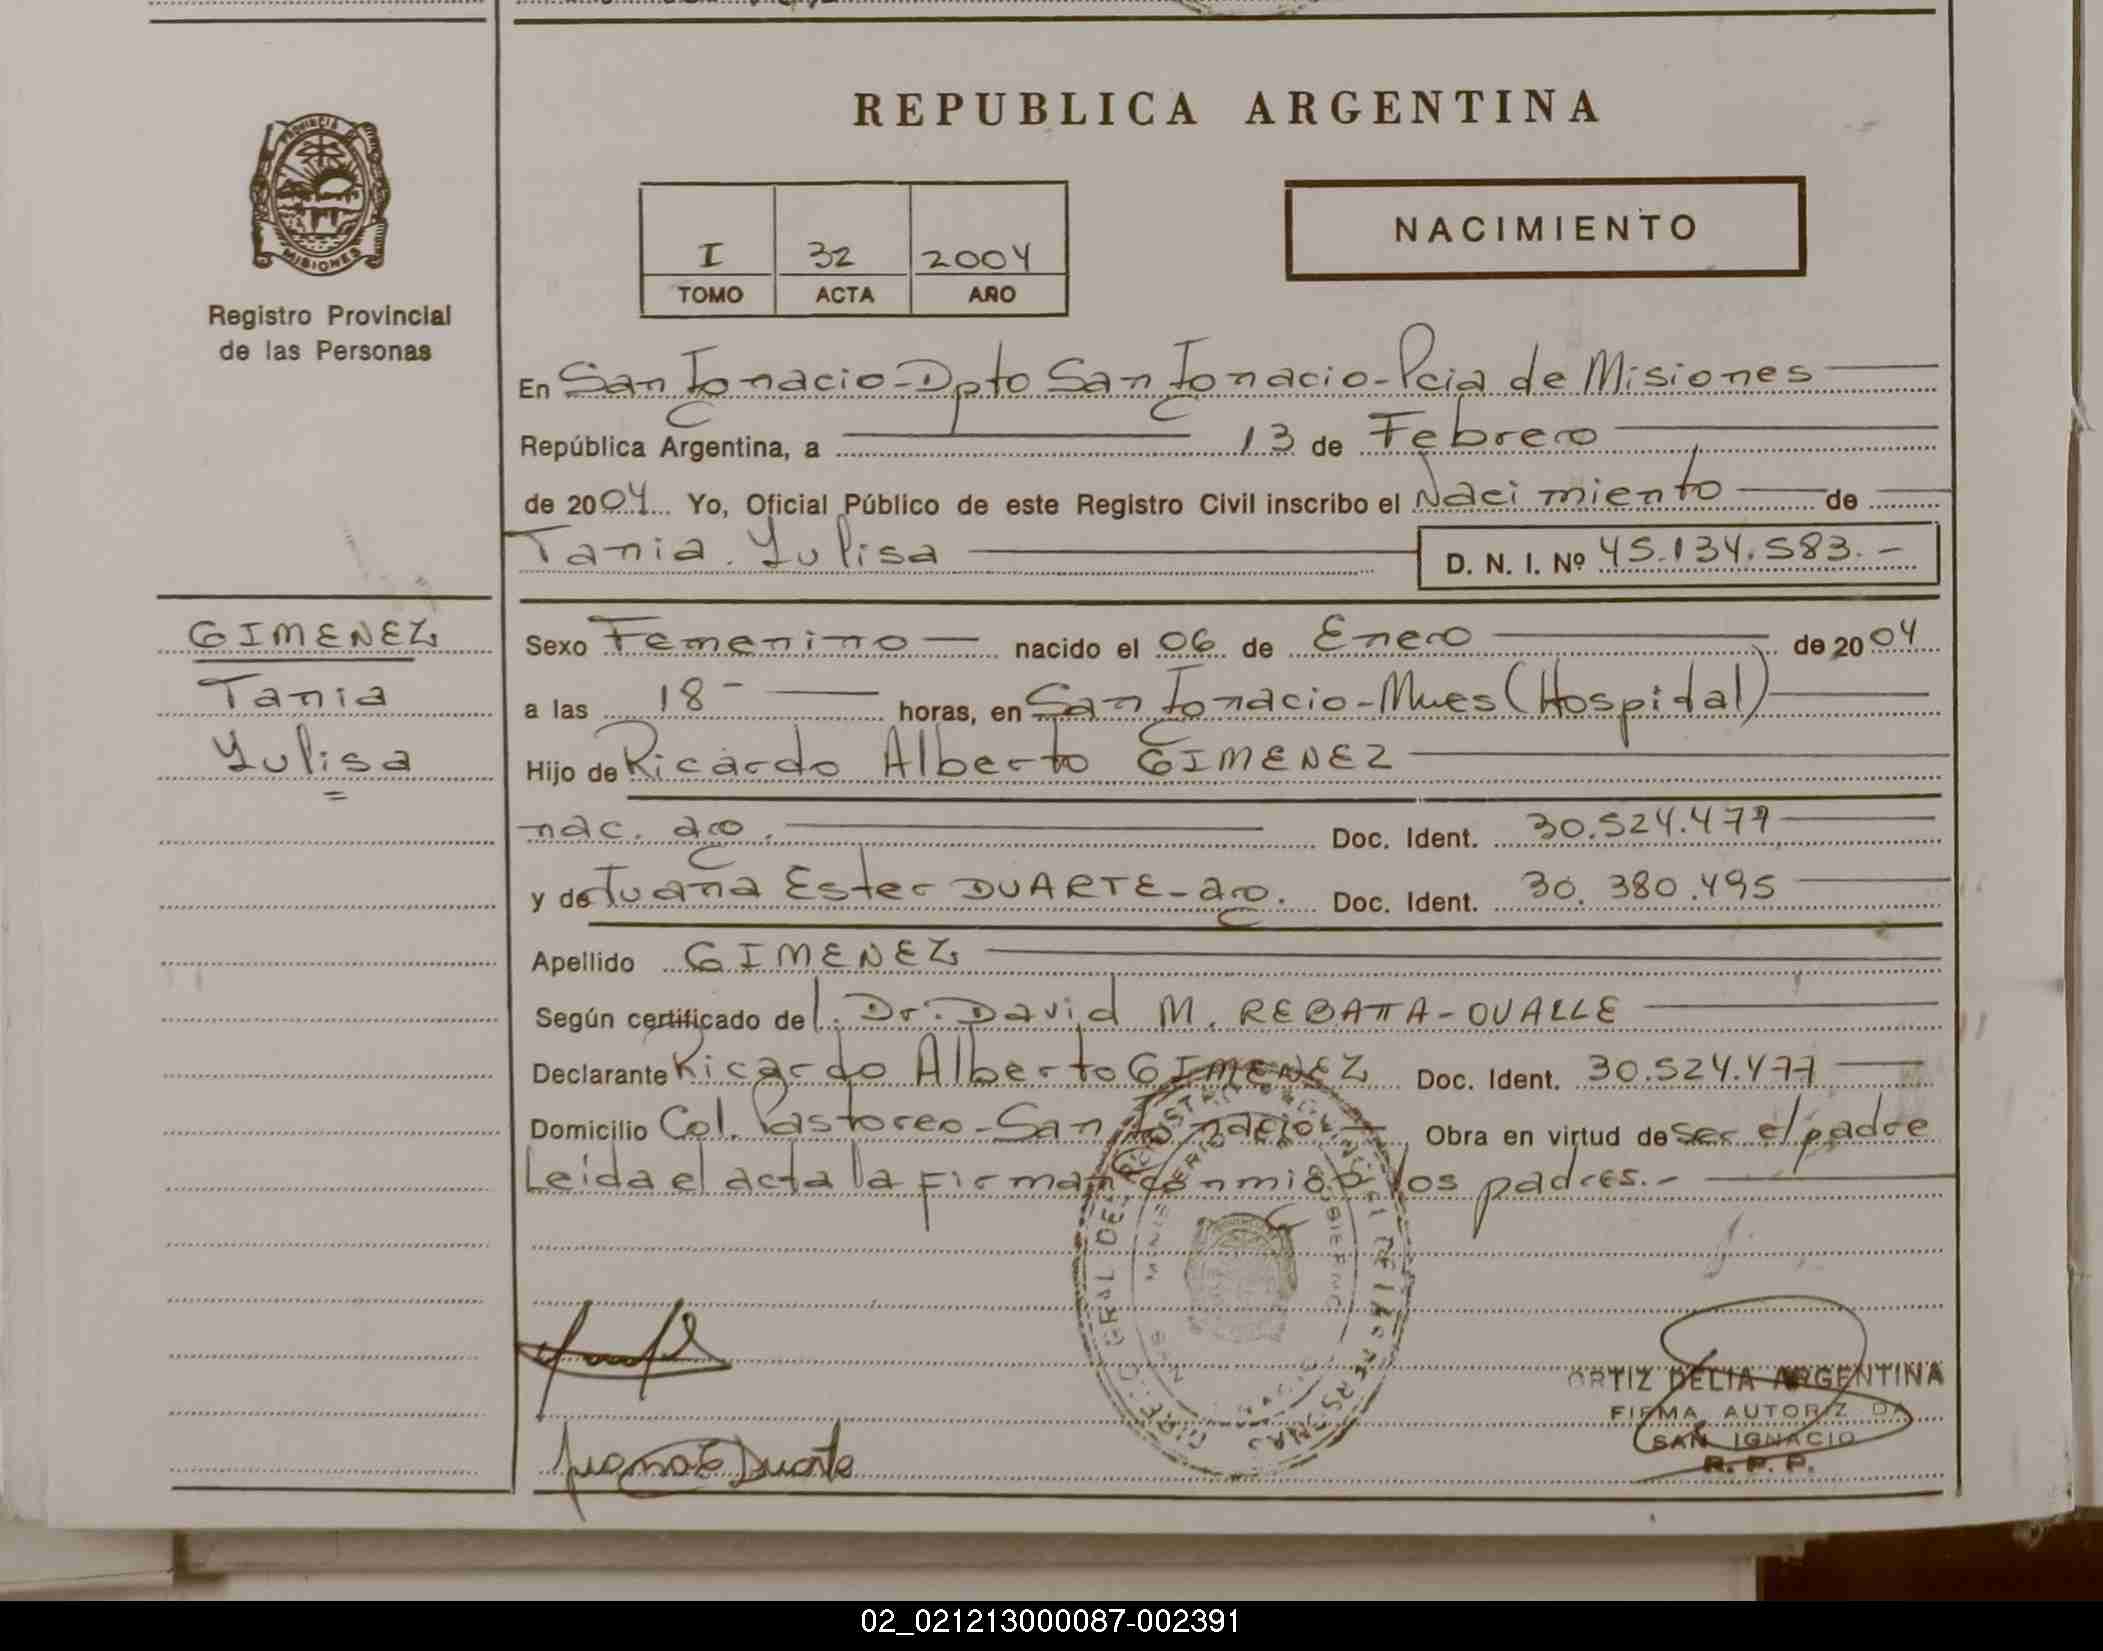 REPUBLICA ARGENTINA
PROVINCIA DE
MISIONES
Registro Provincial
de las Personas
I 32 2004
TOMO ACTA AÑO
NACIMIENTO
En San Ignacio-Dpto San Ignacio-Pcia de Misiones
República Argentina, a 13 de Febrero
de 2004 Yo, Oficial Público de este Registro Civil inscribo el Nacimiento de
Tania Yulisa
D. N. I. Nº 45.134.583.-
GIMENEZ
Tania
Yulisa
Sexo Femenino nacido el 06 de Enero de 2004
a las 18- horas, en San Ignacio-Mnes (Hospital)
Hijo de Ricardo Alberto GIMENEZ
nac. arg. Doc. Ident. 30.524.477
y de Juana Ester DUARTE-arg. Doc. Ident. 30.380.495
Apellido GIMENEZ
Según certificado del. Dr. David M. REBATTA-OVALLE
Declarante Ricardo Alberto GIMENEZ Doc. Ident. 30.524.477
Domicilio Col. Pastoreo-San Ignacio Obra en virtud de ser el padre
Leída el acta la firman conmigo los padres.-
ORTIZ DELIA ARGENTINA
FIRMA AUTORIZADA
SAN IGNACIO
R. P. P.
Juana E Duarte
02_021213000087-002391